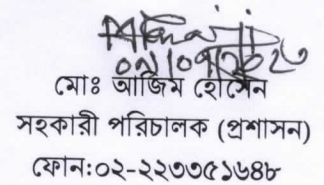 মোঃ আজিম হোসেন
সহকারী পরিচালক (প্রশাসন)
ফোন:০২-২২৩৩৫১৬৪৮